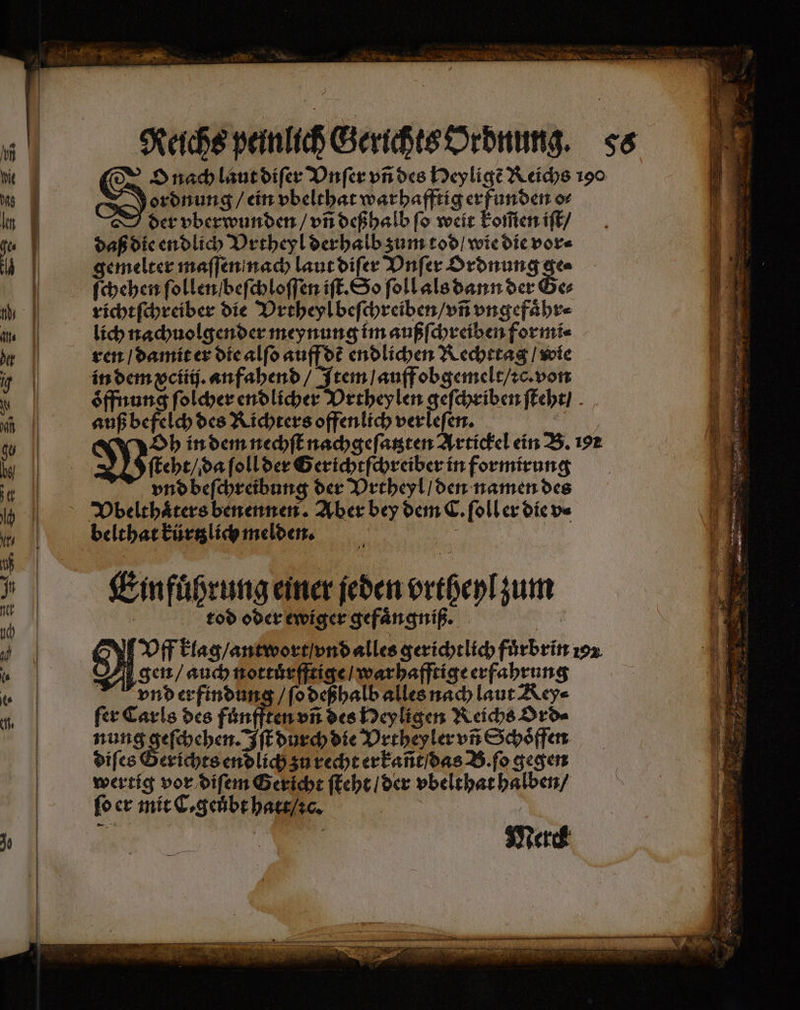 Reichs peinlich Gerichts Ordnung. 58
SO nach laut diſer Vnſer vñ des Heyligẽ Reichs 190
ordnung / ein vbelthat warhafftig erfunden o⸗
der vberwunden / vñ deßhalb ſo weit kom̃en iſt /
daß die endlich Vrtheyl derhalb zum tod / wie die vor⸗
gemelter maſſen / nach laut diſer Vnſer Ordnung ge⸗
ſchehen ſollen / beſchloſſen iſt. So ſoll als dann der Ge⸗
richtſchreiber die Vrtheyl beſchreiben / vñ vngefaͤhr⸗
lich nachuolgender meynung im außſchreiben formi⸗
ren / damit er die alſo auff dẽ endlichen Rechttag / wie
in dem xciiij. anfahend / Item / auff obgemelt / ꝛc. von
oͤffnung ſolcher endlicher Vrtheylen geſchriben ſteht /
auß befelch des Richters offenlich verleſen.
WOh in dem nechſt nachgeſatzten Artickel ein B. 192
ſteht / da ſoll der Gerichtſchreiber in formirung
vnd beſchreibung der Vrtheyl / den namen des
Vbelthaͤters benennen. Aber bey dem C. ſoll er die v⸗
belthat kuͤrtzlich melden.
Einfuͤhrung einer jeden vrtheyl zum
tod oder ewiger gefaͤngniß.
AVff klag / antwort / vnd alles gerichtlich fuͤrbrin 192
gen / auch nottuͤrfftige / warhafftige erfahrung
vnd erfindung / ſo deßhalb alles nach laut Key⸗
ſer Carls des fuͤnfften vñ des Heyligen Reichs Ord⸗
nung geſchehen. Iſt durch die Vrtheyler vñ Schoͤffen
diſes Gerichts endlich zu recht erkañt / das B. ſo gegen
wertig vor diſem Gericht ſteht / der vbelthat halben /
ſo er mit C. geuͤbt hatt / ꝛc.
Merck